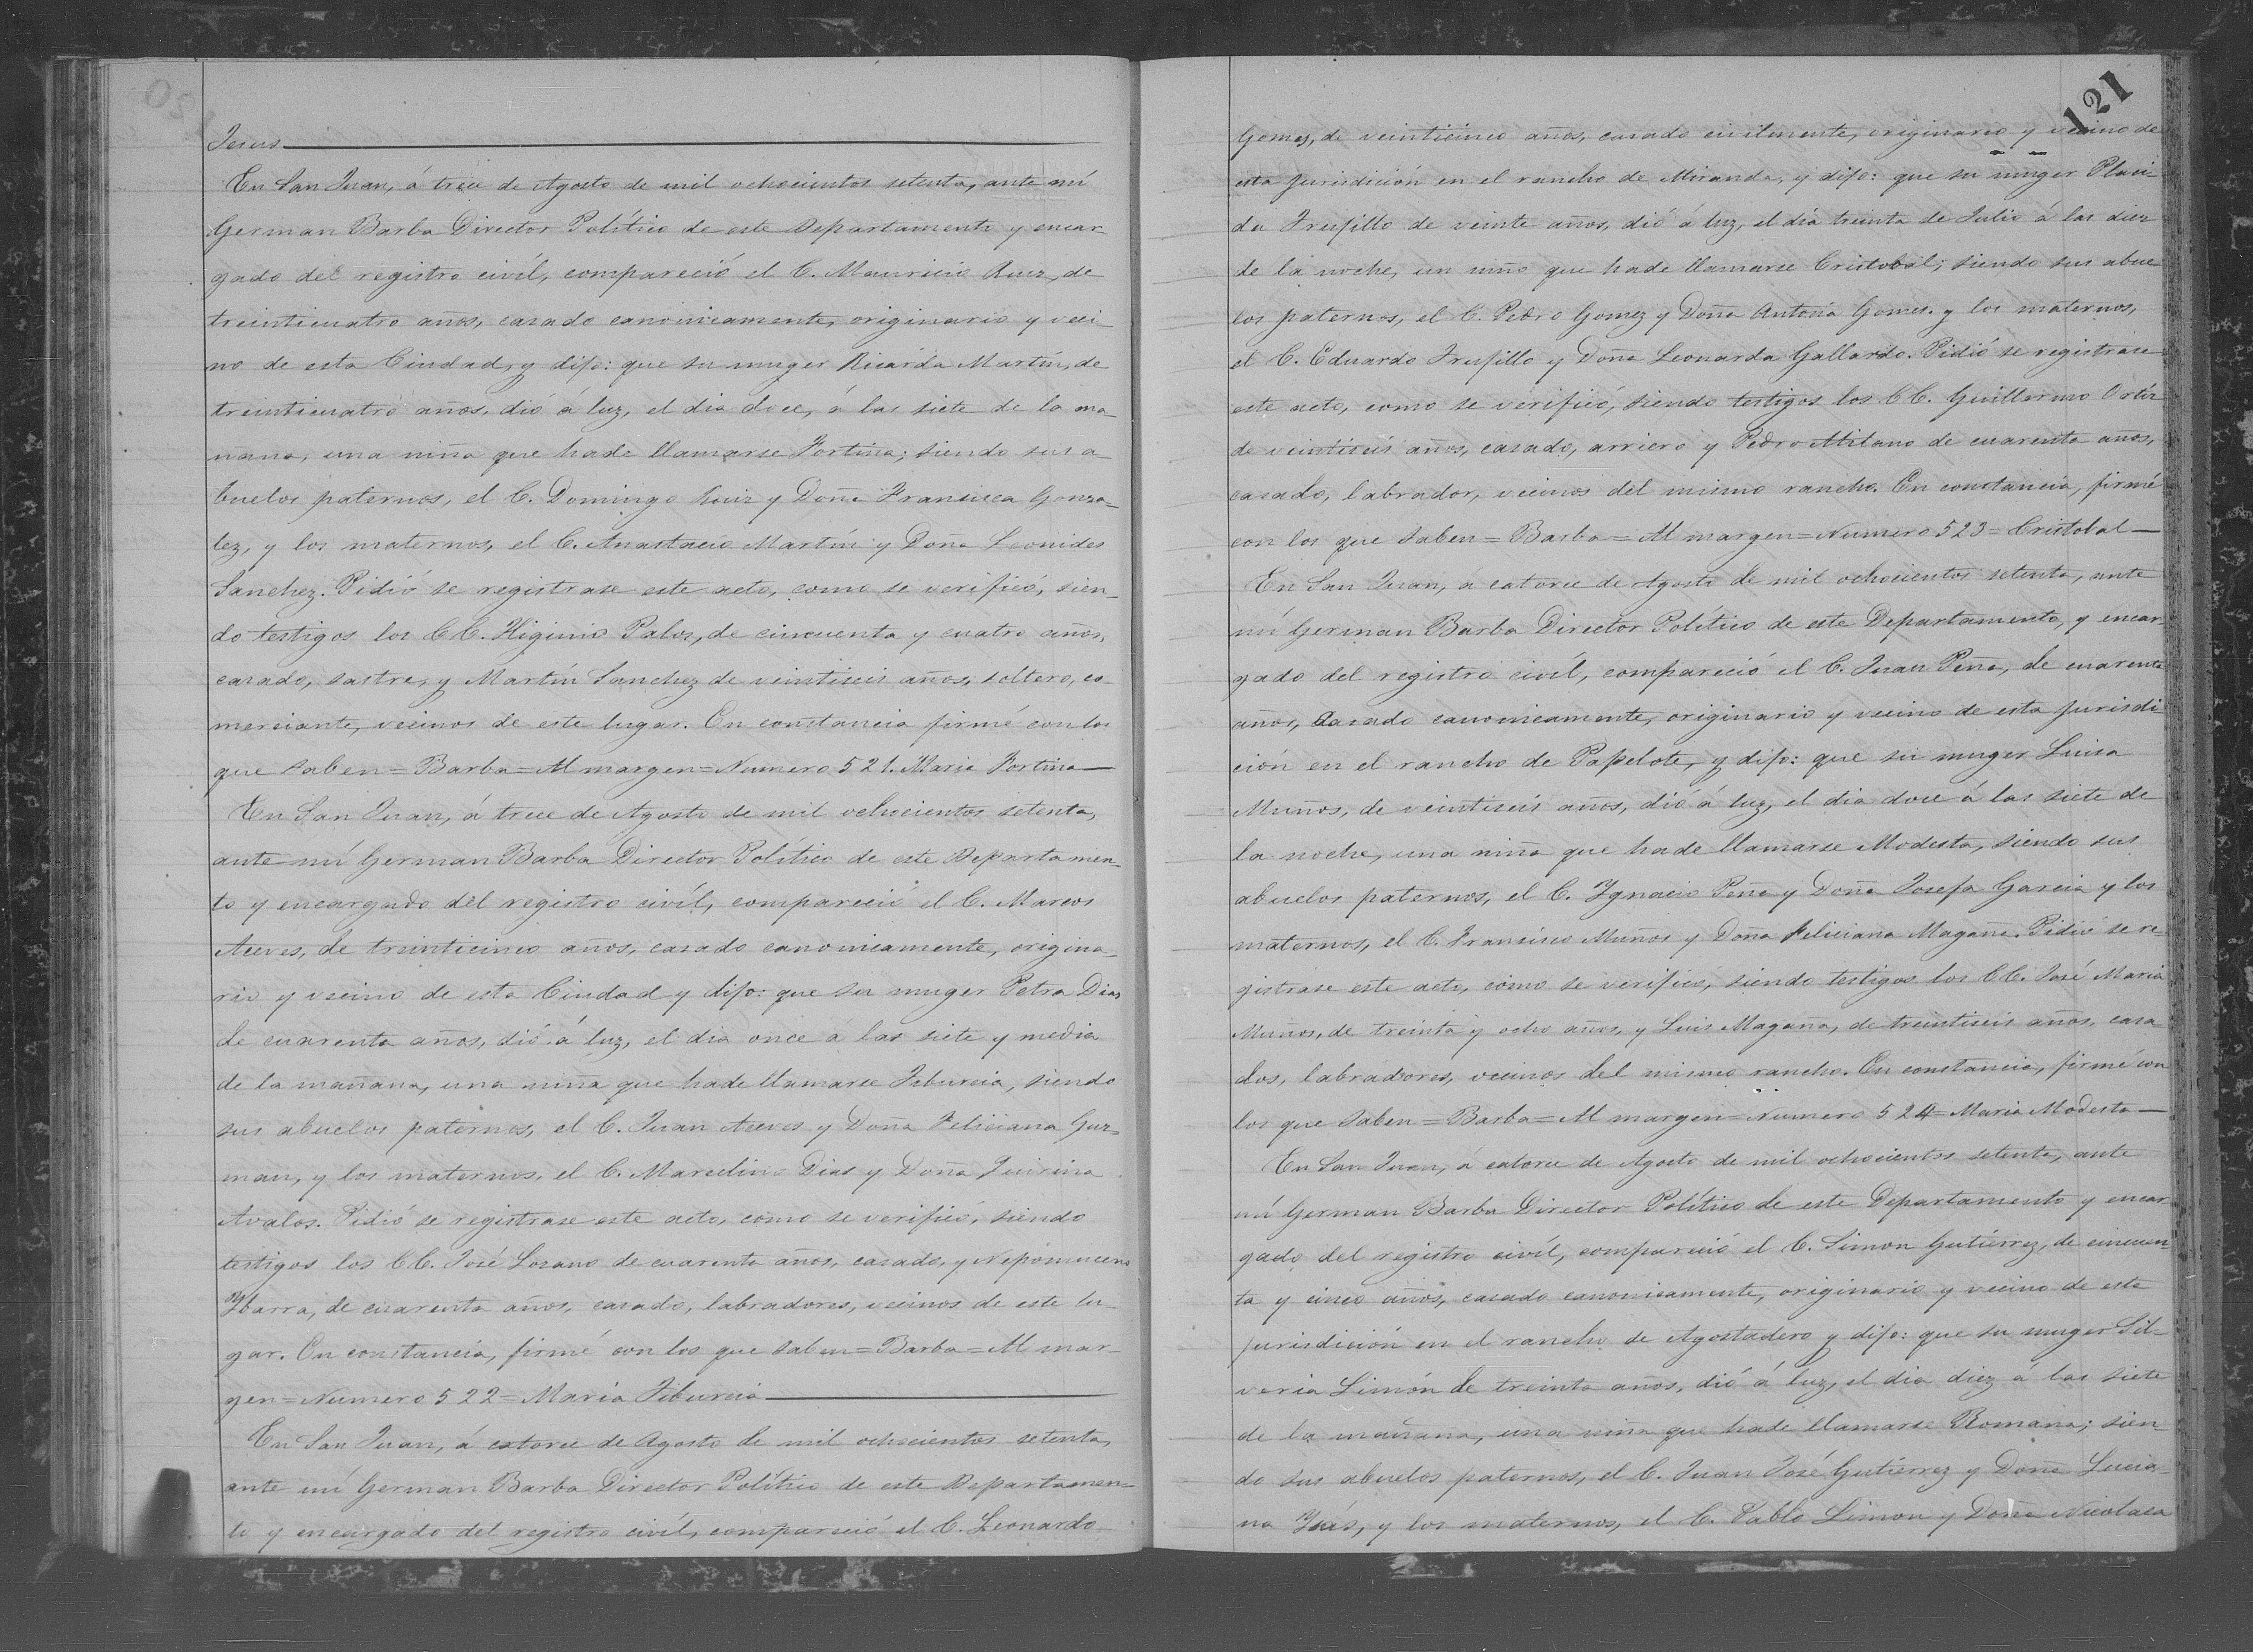 Jesus
En San Juan, á trece de Agosto de mil ochocientos setenta, ante mí
German Barba Director Político de este Departamento y encar-
gado del registro civíl, compareció el C. Mauricio Ruiz, de
treinticuatro años, casado canonicamente, originario y veci-
no de esta Ciudad, y dijo: que su muger Ricarda Martín, de
treinticuatro años, dió á luz, el dia doce, á las siete de la ma-
ñana, una niña que hade llamarse Fortina; siendo sus a-
buelos paternos, el C. Domingo Ruiz y Doña Francisca Gonza-
lez, y los maternos, el C. Anastacio Martín y Doña Leonides
Sanchez. Pidió se registrase este acto, como se verificó, sien-
do testigos los CC. Higinio Palos, de cincuenta y cuatro años,
casado, sastre, y Martín Sanchez de veintiseis años, soltero, co-
merciante, vecinos de este lugar. En constancia firmé con los
que saben = Barba = Al margen = Numero 521. Maria Fortina
En San Juan, á trece de Agosto de mil ochocientos setenta,
ante mí German Barba Director Político de este Departamen-
to y encargado del registro civíl, compareció el C. Marcos
Aceves, de treinticinco años, casado canonicamente, origina-
rio y vecino de esta Ciudad y dijo: que su muger Petra Dias
de cuarenta años, dió á luz, el dia once a las siete y media
de la mañana, una niña que hade llamarse Tiburcia, siendo
sus abuelos paternos, el C. Juan Aceves y Doña Feliciana Guz-
man, y los maternos, el C. Marcelino Dias y Doña Quirina
Avalos. Pidió se registrase este acto, como se verificó, siendo
testigos los CC. José Lozano de cuarenta años, casado, y Nepomuceno
Ybarra, de cuarenta años, casado, labradores, vecinos de este lu-
gar. En constancia, firmé con los que saben = Barba = Al mar-
gen = Numero 522 = Maria Tiburcia
En San Juan, á catorce de Agosto de mil ochocientos setenta,
ante mí German Barba Director Político de este Departamen-
to y encargado del registro civíl, compareció el C. Leonardo
121
Gomes, de veinticinco años, casado civilmente, originario y vecino de
esta jurisdición en el rancho de Miranda, y dijo: que su muger Placi-
da Trujillo de veinte años, dió á luz, el día treinta de Julio á las diez
de la noche, un niño que hade llamarse Cristobal; siendo sus abue
los paternos, el C. Pedro Gomez y Doña Antonia Gomes y los maternos,
el C. Eduardo Trujillo y Doña Leonarda Gallardo. Pidió se registrase
este acto, como se verificó, siendo testigos los CC. Guillermo Ortíz
de veintiseis años, casado, arriero y Pedro Milano de cuarenta años,
casado, labrador, vecinos del mismo rancho. En constancia, firmé
con los que saben = Barba = Al margen = Numero 523 = Cristobal
En San Juan, á catorce de Agosto de mil ochocientos setenta, ante
mí German Barba Director Político de este Departamento, y encar-
gado del registro civíl, compareció el C. Juan Peña, de cuarenta
años, casado canonicamente, originario y vecino de esta jurisdi
ción en el rancho de Papelote, y dijo: que su muger Luisa
Muños, de veintiseis años, dió á luz, el dia doce á las siete de
la noche, una niña que hade llamarse Modesta, siendo sus
abuelos paternos, el C. Ygnacio Peña y Doña Josefa Garcia y los
maternos, el C. Francisco Muños y Doña Feliciana Magaña. Pidió se re-
gistrase este acto, como se verificó, siendo testigos los CC. José Maria
Muños, de treinta y ocho años, y Luis Magaña, de treintiseis años, casa-
dos, labradores, vecinos del mismo rancho. En constancia, firmé con
los que saben = Barba = Al margen = Numero 524 = Maria Modesta
En San Juan, á catorce de Agosto de mil ochocientos setenta, ante
mí German Barba Director Político de este Departamento y encar
gado del registro civíl, compareció el C. Simon Gutiérrez, de cincuen-
ta y cinco años, casado canonicamente, originario y vecino de esta
jurisdición en el rancho de Agostadero y dijo: que su muger Sil-
veria Limón de treinta años, dió á luz, el dia diez á las siete
de la mañana, una niña que hade llamarse Romana; sien-
do sus abuelos paternos, el C. Juan José Gutiérrez y Doña Lucia-
na y los maternos, el C. Pablo Limon y Doña Nicolasa